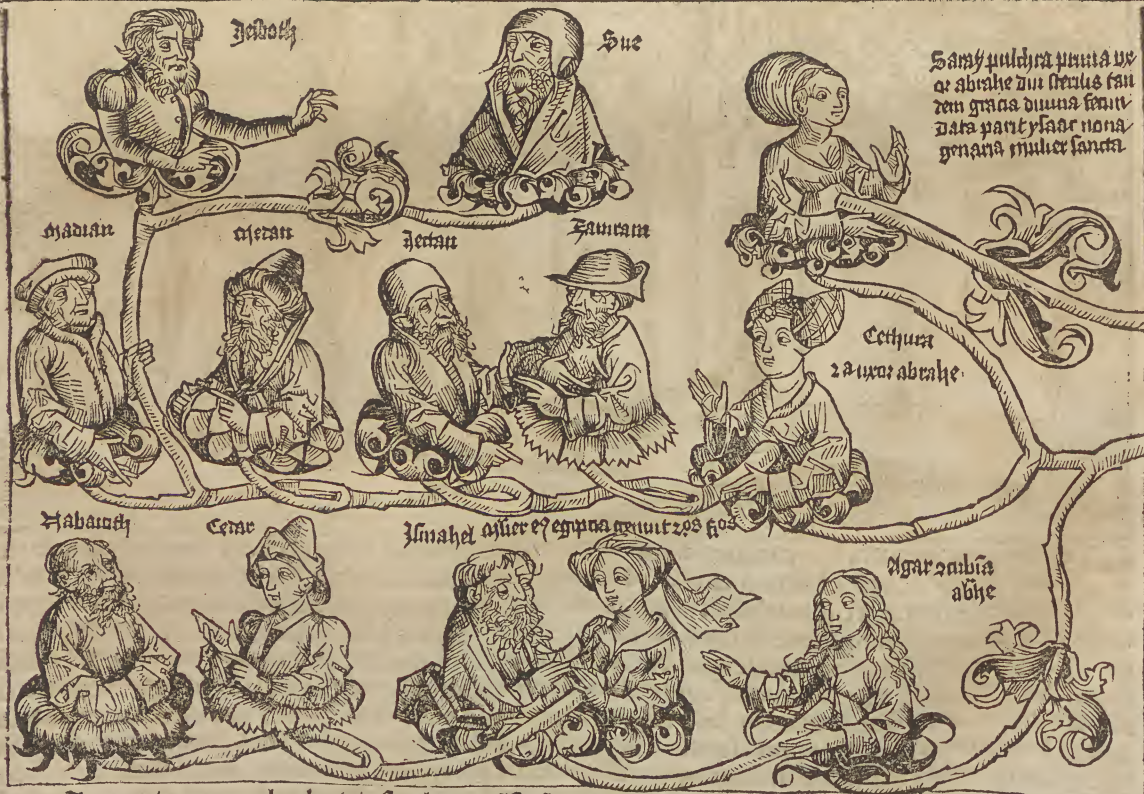 Jesboth
Sue
Saray pulchra prima vx
or abrahe diu sterilis tan
dem gracia diuina fecun
data parit ysaac nona
genaria mulier sancta
Madian
Medan
Jectan
Zamram
Cethura
2a uxor abrahe.
Nabaioth
Cedar
Ismahel mulier eꝰ egiptia genuit
Agar ꝯcubīa
abhe